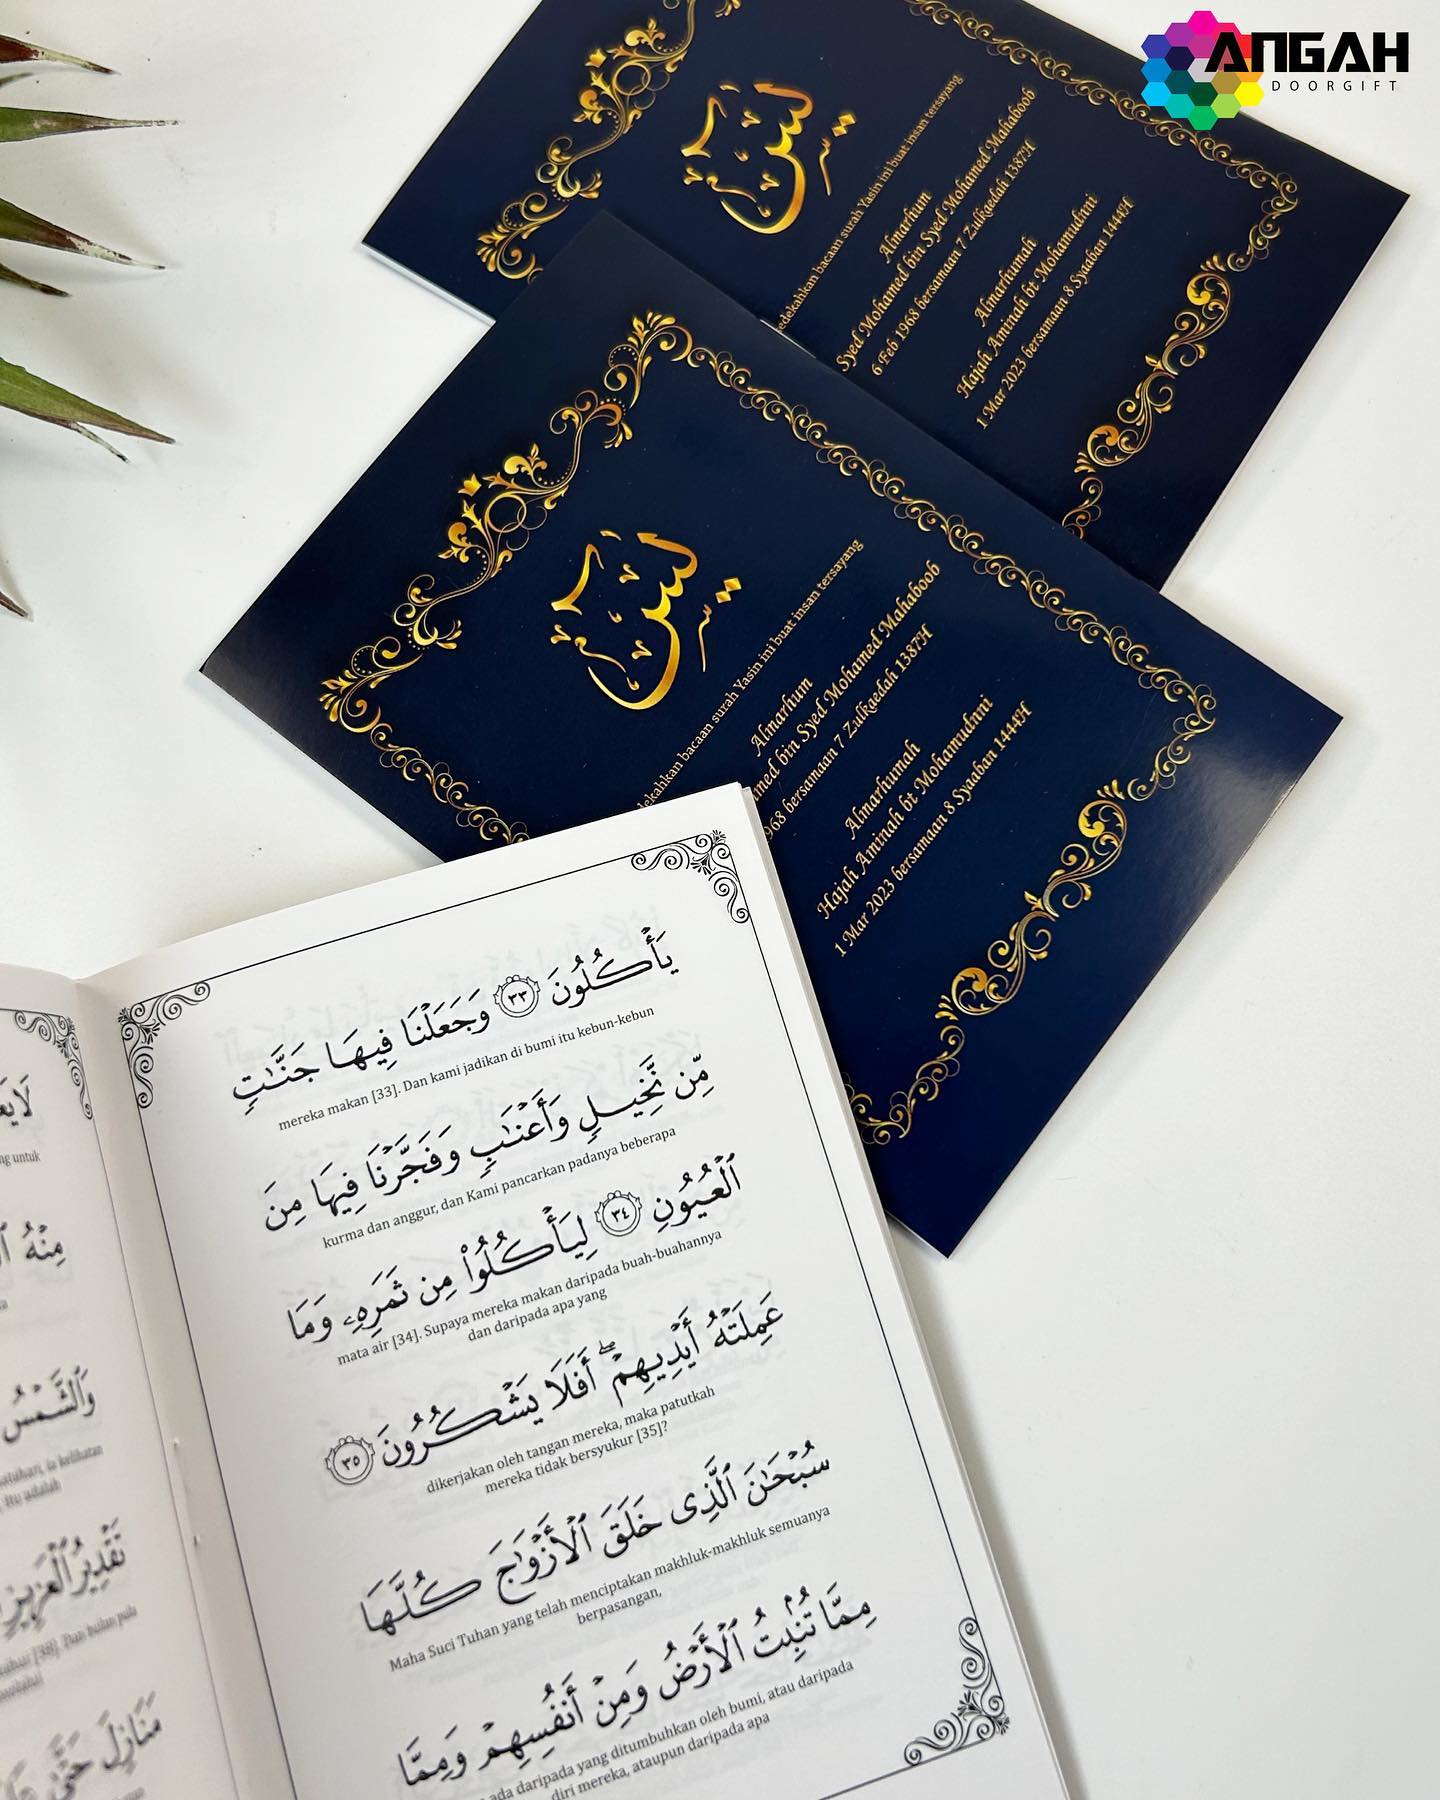 ANGAH
DOORGIFT
يس
edekahkan bacaan surah Yasin ini buat insan tersayang
Almarhum
Syed Mohamed bin Syed Mohamed Mahaboob
6 Feb 1968 bersamaan 7 Zulkaedah 1387H
Almarhumah
Hajah Aminah bt Mohamudnni
1 Mar 2023 bersamaan 8 Syaaban 1444H
يس
dekahkan bacaan surah Yasin ini buat insan tersayang
Almarhum
amed bin Syed Mohamed Mahaboob
968 bersamaan 7 Zulkaedah 1387H
Almarhumah
Hajah Aminah bt Mohamudnni
1 Mar 2023 bersamaan 8 Syaaban 1444H
يَأْكُلُونَ ٣٣ وَجَعَلْنَا فِيهَا جَنَّٰتٍ
mereka makan [33]. Dan kami jadikan di bumi itu kebun-kebun
مِّن نَّخِيلٍ وَأَعْنَٰبٍ وَفَجَّرْنَا فِيهَا مِنَ
kurma dan anggur, dan Kami pancarkan padanya beberapa
ٱلْعُيُونِ ٣٤ لِيَأْكُلُوا۟ مِن ثَمَرِهِۦ وَمَا
mata air [34]. Supaya mereka makan daripada buah-buahannya
dan daripada apa yang
عَمِلَتْهُ أَيْدِيهِمْ ۖ أَفَلَا يَشْكُرُونَ ٣٥
dikerjakan oleh tangan mereka, maka patutkah
mereka tidak bersyukur [35]?
سُبْحَٰنَ ٱلَّذِى خَلَقَ ٱلْأَزْوَٰجَ كُلَّهَا
Maha Suci Tuhan yang telah menciptakan makhluk-makhluk semuanya
berpasangan,
مِمَّا تُنۢبِتُ ٱلْأَرْضُ وَمِنْ أَنفُسِهِمْ وَمِمَّا
ada daripada yang ditumbuhkan oleh bumi, atau daripada
diri mereka, ataupun daripada apa
ng untuk
مِنْهُ
وَٱلشَّمْسُ
atahari, ia kelihatan
itu adalah
تَقْدِيرُ ٱلْعَزِيزِ
[38]. Dan bulan pula
مَنَازِلَ حَتَّىٰ